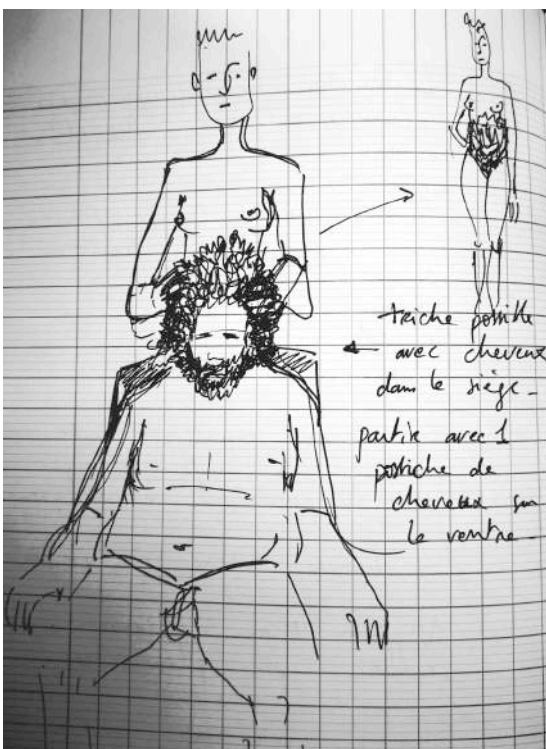 triche possible
avec cheveux
dans le siège -
partir avec 1
postiche de
cheveux sur
le ventre -